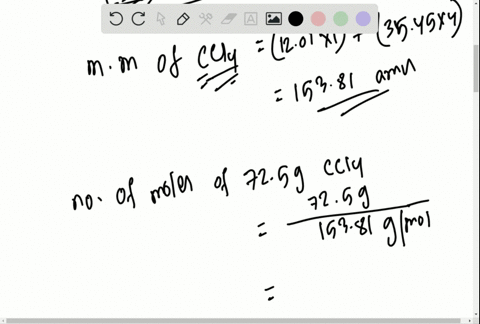 m.m of CCl4 = (12.01×1) + (35.45×4)
= 153.81 amu
no. of moles of 72.5g CCl4
= 72.5g / 153.81 g/mol
=